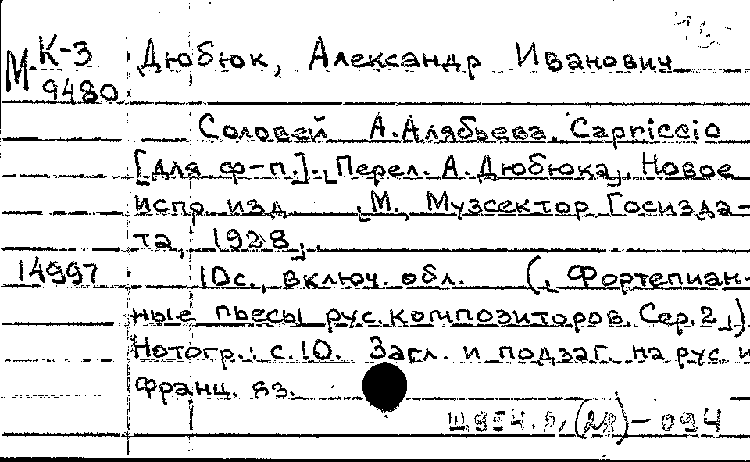 М К-3 Дюбюк, Александр Иванович
9480
Соловей А. Алябьева. Capriccio
[для ф-п.]. [Перел. А. Дюбюка]. Новое
испр. изд. [М., Музсектор Госизда-
та, 1928].
14997 10 с., включ. обл. ([Фортепиан-
ные пьесы рус. композиторов. Сер. 2])
Нотогр.: с. 10. Загл. и подзаг. на рус. и
франц. яз.
(28)-094